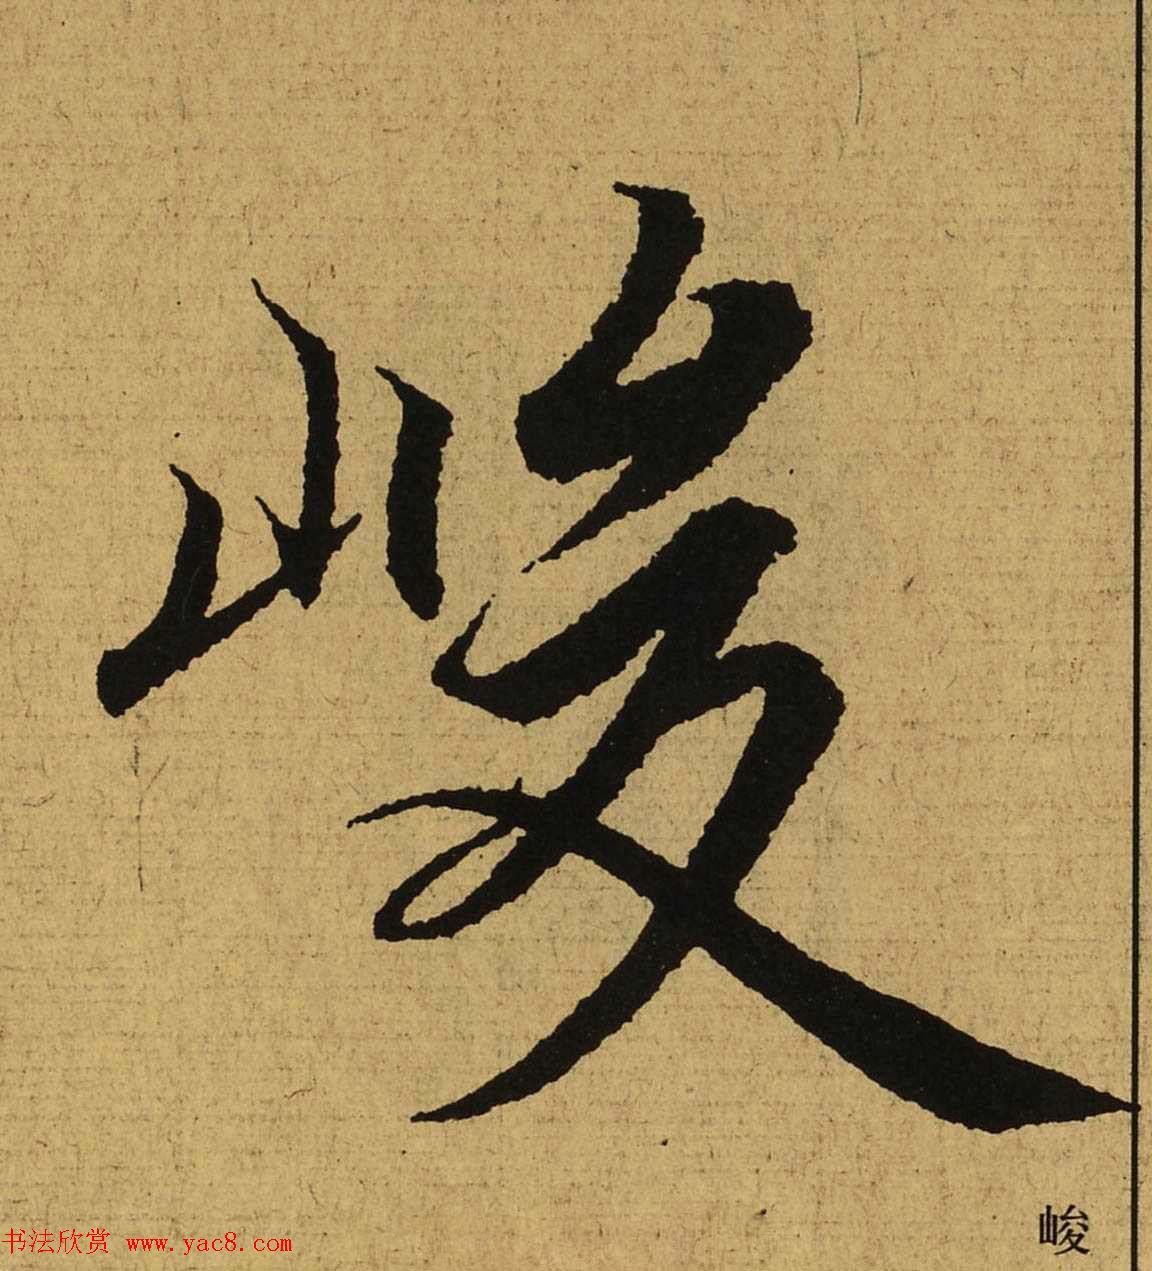 峻
峻
书法欣赏 www.yac8.com